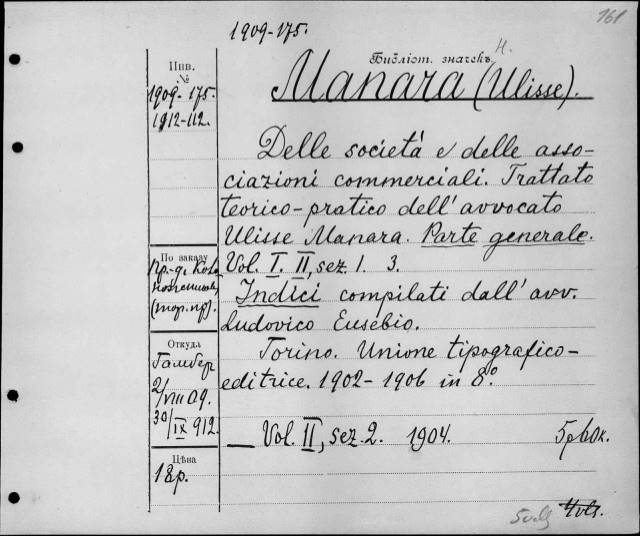 161
1909-175.
Библіот. значекъ
Инв.
№
1909-175.
1912-112.
Manara (Ulisse).
Delle società e delle asso-
ciazioni commerciali. Trattato
teorico-pratico dell'avvocato
Ulisse Manara. Parte generale.
Vol. I. II, sez. 1. 3.
Indici compilati dall'avv.
Ludovico Eusebio.
Torino. Unione tipografico-
editrice. 1902-1906 in 8º.
— Vol. II, sez. 2. 1904. 5р60к.
По заказу
(тор. пр).
Откуда
Гамбер
2/VIII 09.
30/IX 912.
Цѣна
18р.
5 vol. 4 vls.